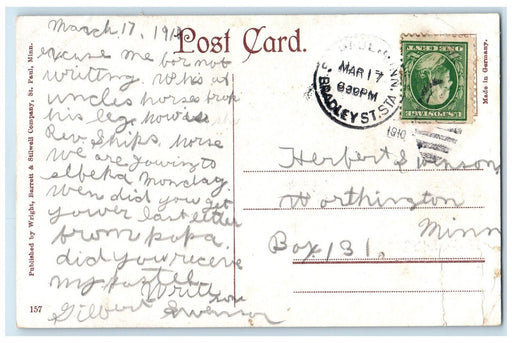 March 17, 1910
Post Card.
excuse me for not
writting. Who's at
uncles horse brok
his leg, how is
Rev. Ships, horse
we are gowing to
elbeka Monday.
wen did you get
yower last letter
from papa.
did you receive
my postel
Writt soon
Gilbert Swenson
Herbert Swenson
Worthington
Minn
Box 131.
MAR 17
630PM
1910
BRADLEY ST. STA.
ONE CENT
U.S. POSTAGE
Made in Germany.
Published by Wright, Barrett & Stilwell Company, St. Paul, Minn.
157